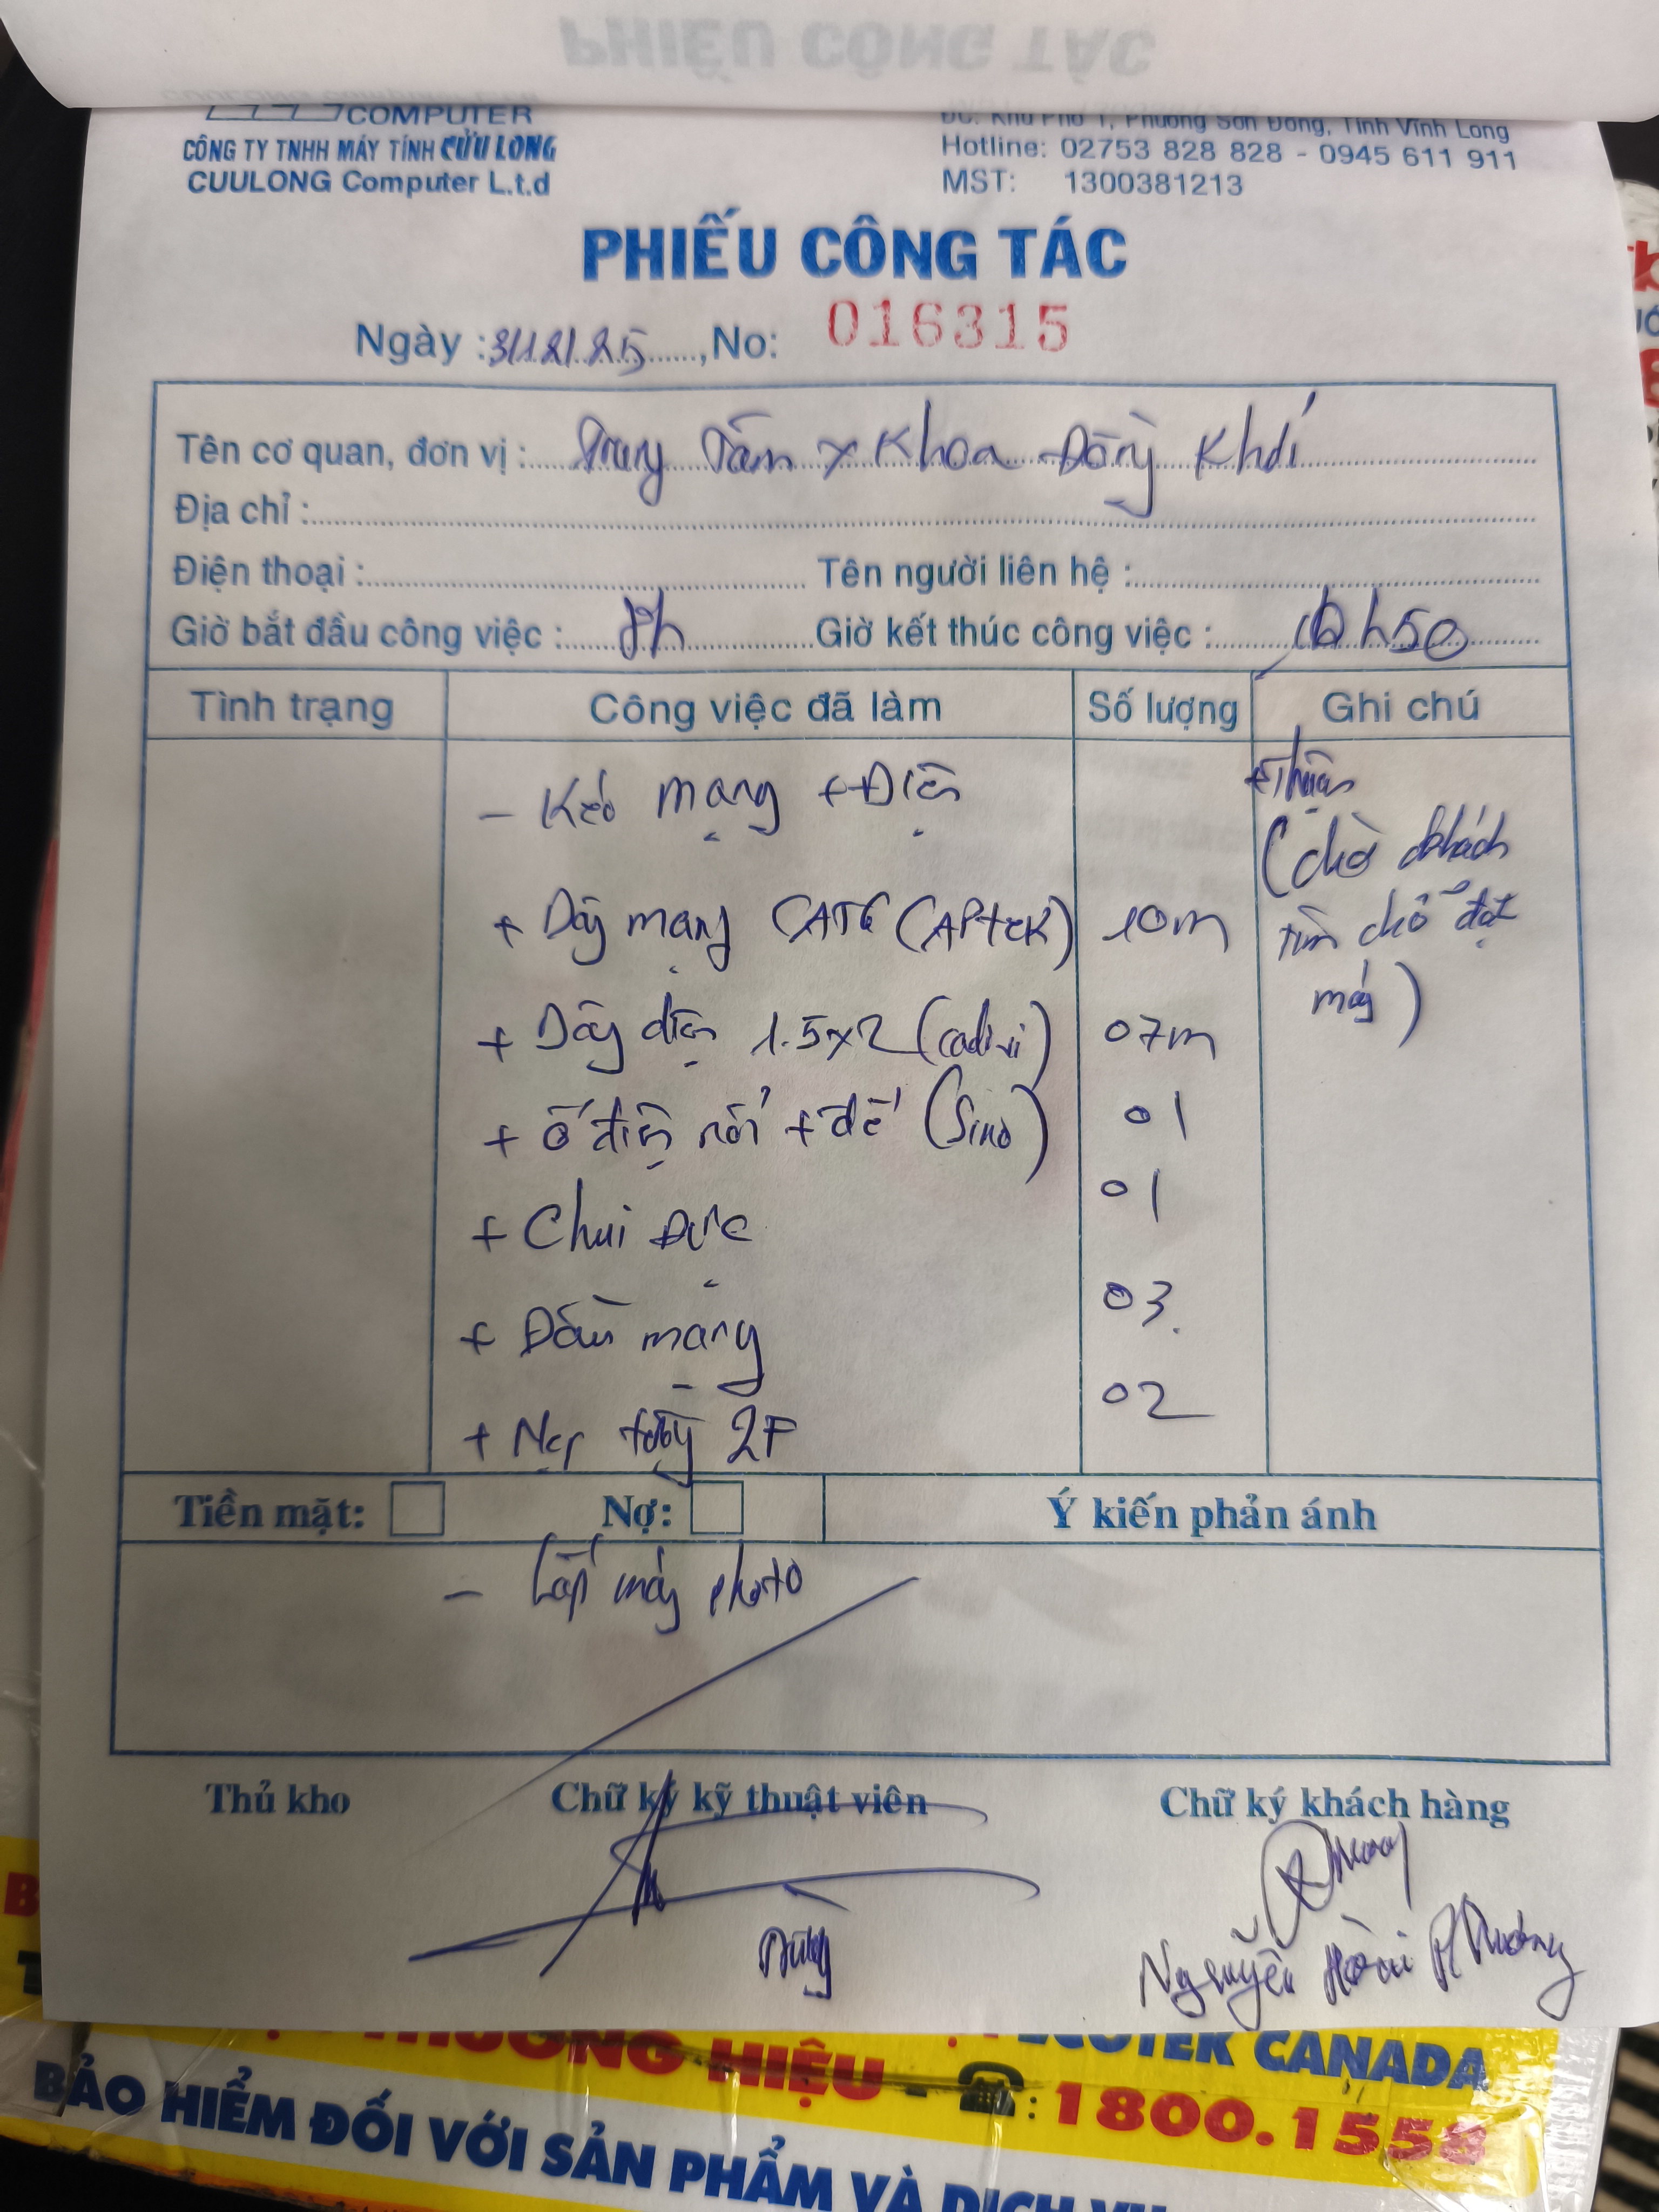 PHIẾU CÔNG TÁC
COMPUTER
CÔNG TY TNHH MÁY TÍNH CỬU LONG
CUULONG Computer L.t.d
ĐC: Khu Phố 1, Phường Sơn Đông, Tỉnh Vĩnh Long
Hotline: 02753 828 828 - 0945 611 911
MST: 1300381213
PHIẾU CÔNG TÁC
Ngày : 31.12.25, No: 016315
Tên cơ quan, đơn vị : Trung Tâm Y Khoa Đồng Khởi
Địa chỉ :
Điện thoại : Tên người liên hệ :
Giờ bắt đầu công việc : 8h Giờ kết thúc công việc : 10h50
Tình trạng Công việc đã làm Số lượng Ghi chú
- Kéo mạng + Điện
+ Thuận
(chờ khách
tìm chỗ đặt
máy)
+ Dây mạng CAT6 (APtek) 10m
+ Dây điện 1.5x2 (cadivi) 07m
+ Ổ điện nổi + đế (Sino) 01
+ Chui Đực 01
+ Đầu mạng 03
+ Nẹp 2F 02
Tiền mặt: Nợ: Ý kiến phản ánh
- Lắp máy photo
Thủ kho Chữ ký kỹ thuật viên Chữ ký khách hàng
Nguyễn Hoài Phương
THƯƠNG HIỆU - : 1800.1558
ECOTEK CANADA
BẢO HIỂM ĐỐI VỚI SẢN PHẨM VÀ DỊCH VỤ